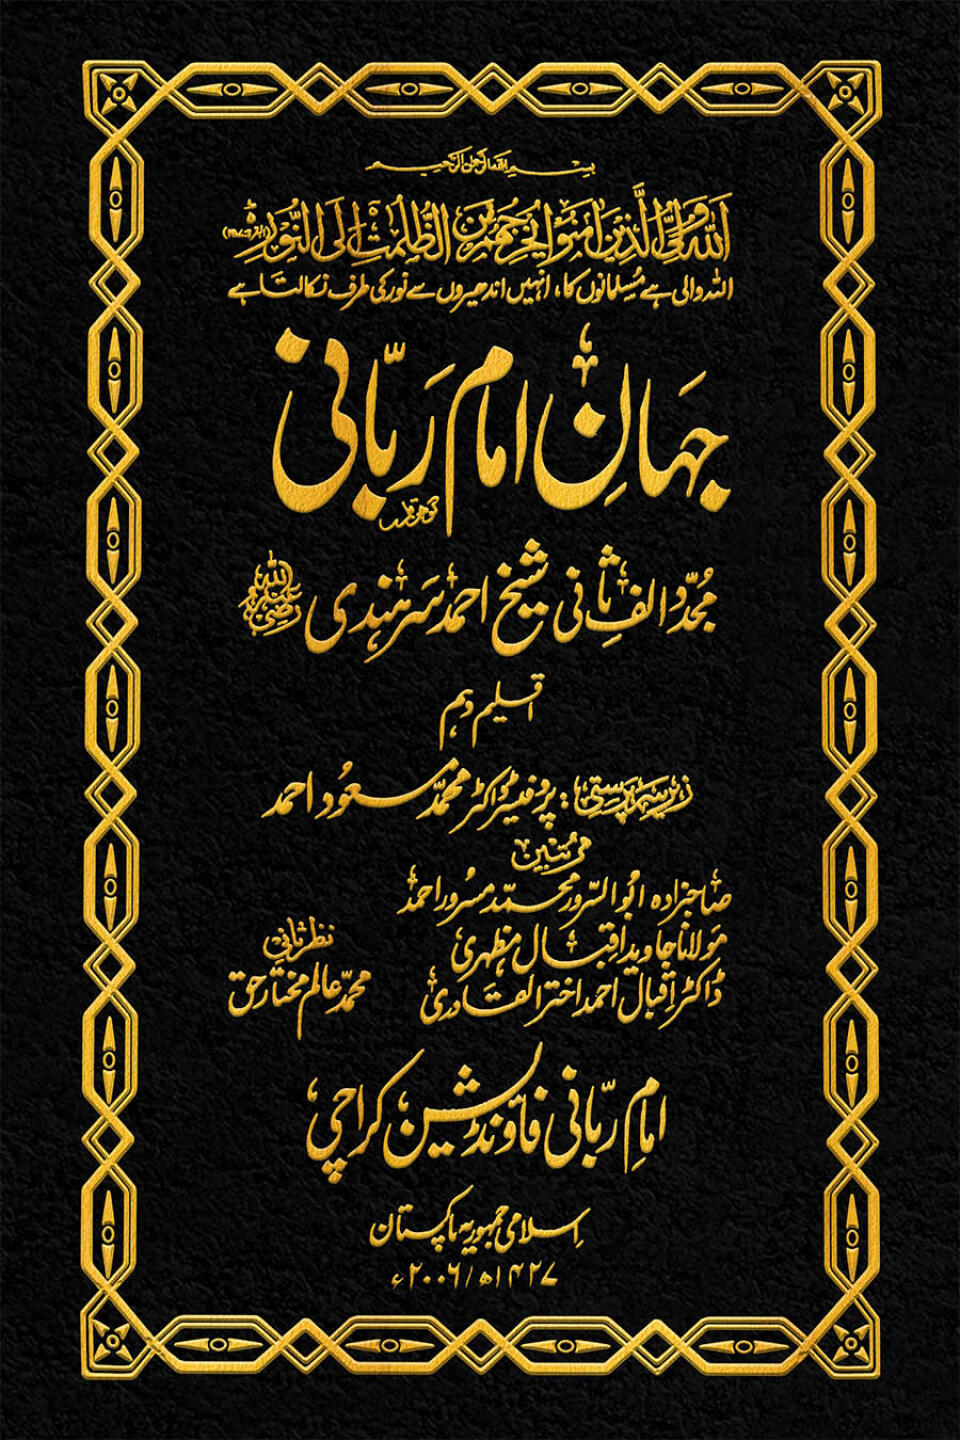 بسم اللہ الرحمن الرحیم
اَللّٰهُ وَلِیُّ الَّذِیْنَ اٰمَنُوْا یُخْرِجُهُمْ مِّنَ الظُّلُمٰتِ اِلَی النُّوْرِ (البقرہ:۲۵۷)
اللہ والی ہے مُسلمانوں کا، انہیں اندھیروں سے نور کی طرف نکالتا ہے
جہانِ امام رَبّانی
گوہر قلم
مُجدّد الفِ ثانی شیخ احمد سَرہندی رضی اللہ عنہ
اقلیم دہم
زیر سرپرستی: پروفیسر ڈاکٹر محمّد مسعُود احمد
مرتبین
صاحبزادہ ابُوالسّرور محمّد مسرُور احمد
مَولانا جاوید اقبال مظہری
ڈاکٹر اِقبال احمد اختر القادری
نظرِ ثانی
محمّد عالم مختارِ حق
امامِ ربّانی فاؤنڈیشن کراچی
اِسلامی جمہوریہ پاکستان
۱۴۲۷ھ/۲۰۰۶ء